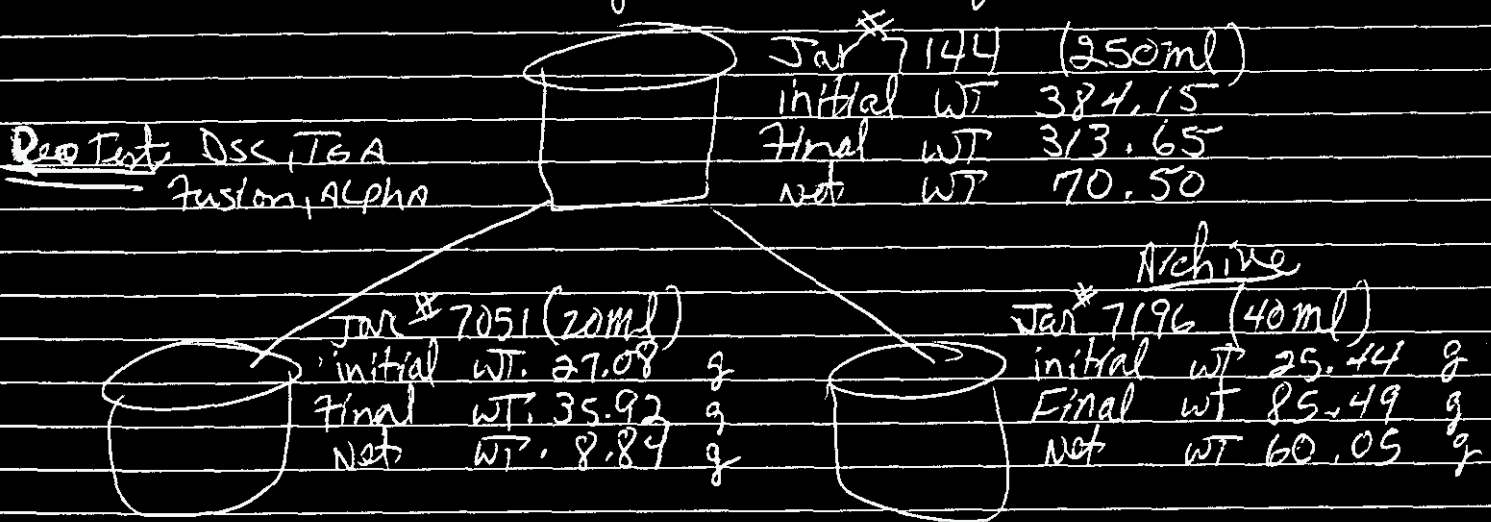 Jar # 7144 (250ml)
initial WT 384.15
Final WT 313.65
Net WT 70.50
Test DSC, TGA
Fusion, Alpha
Archive
Jar # 7051 (20ml)
initial WT. 27.08 g
Final WT. 35.92 g
Net WT. 8.84 g
Jar # 7196 (40ml)
initial wt 25.44 g
Final wt 85.49 g
Net WT 60.05 g